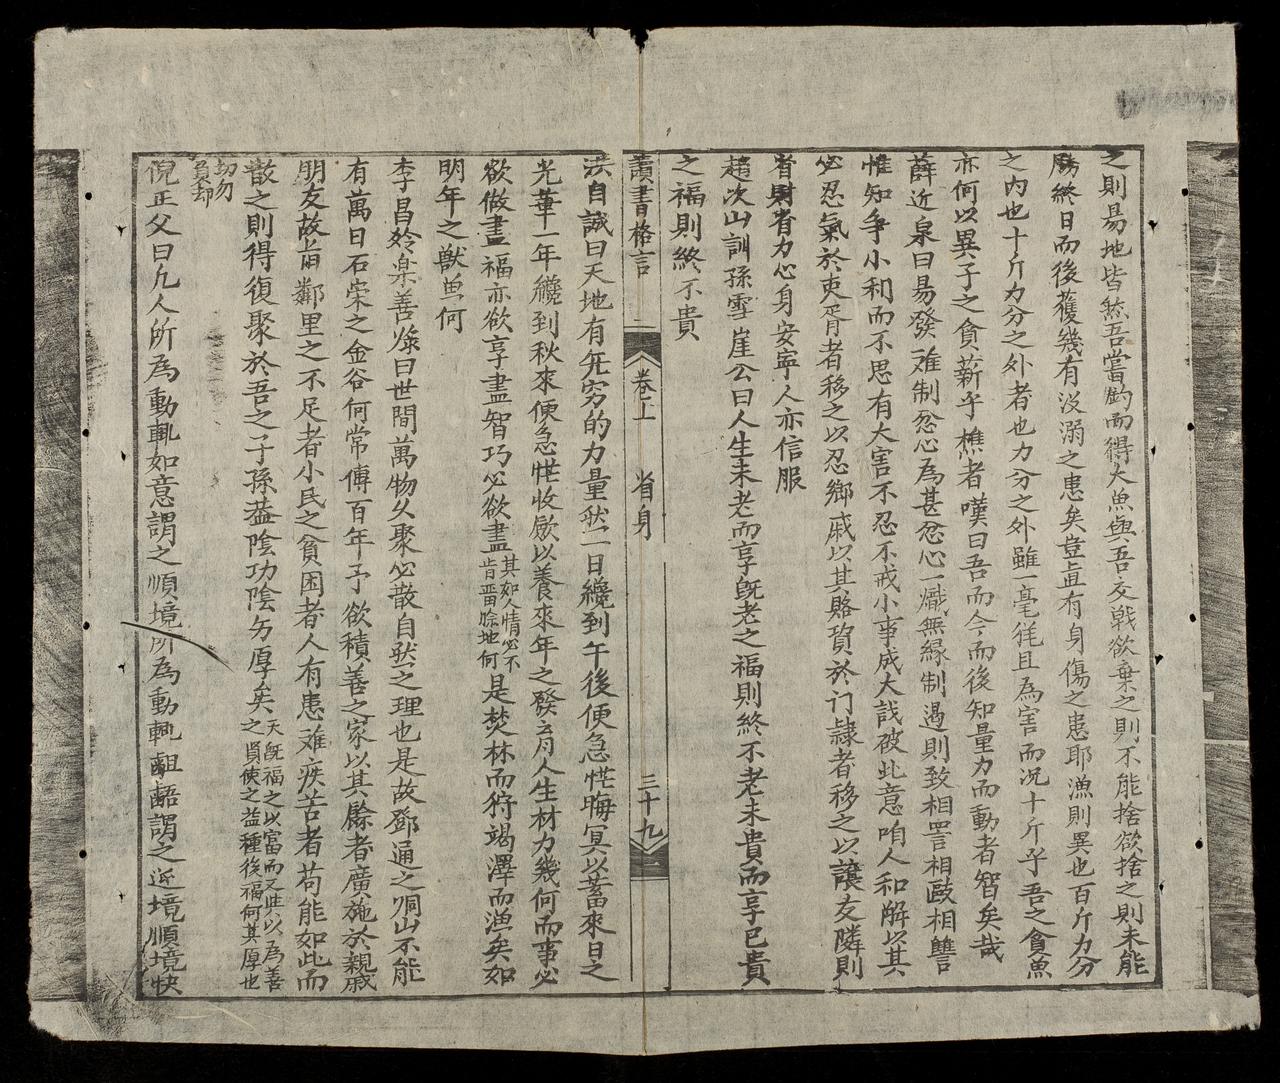 之則易地皆然吾嘗釣而得大魚與吾交戰欲棄之則不能捨欲捨之則未能
勝終日而後獲幾有沒溺之患矣豈直有身傷之患耶漁則異也百斤力分
之內也十斤力分之外者也力分之外雖一毫猶且為害而况十斤乎吾之貪魚
亦何以異子之貪薪乎樵者嘆曰吾而今而後知量力而動者智矣哉
薛近泉曰易發难制忿心為甚忿心一熾無緣制遏則致相詈相敺相讐
惟知爭小利而不思有大害不忍不戒小事成大識破此意咱人和解以其
必忍氣於吏胥者移之以忍鄉戚以其賂資於门隷者移之以讓友隣則
省財省力心身安寧人亦信服
趙次山訓孫雪崖公曰人生未老而享旣老之福則終不老未貴而享已貴
之福則終不貴
讀書格言 卷上 省身 三十九
洪自誠曰天地有无穷的力量然一日纔到午後便急忙晦冥以蓄來日之
光華一年纔到秋來便急忙收斂以養來年之發育人生材力幾何而事必
欲做盡福亦欲享盡智巧必欲盡其如人情必不肯畱餘地何是焚林而狩竭澤而漁矣如
明年之獸魚何
李昌岭楽善箓曰世間萬物久聚必散自然之理也是故鄧通之洞山不能
有萬日石宗之金谷何常傳百年予欲積善之家以其餘者廣施於親戚
朋友故旧鄰里之不足者小民之貧困者人有患难疾苦者苟能如此而
散之則得復聚於吾之子孫葢陰功陰另厚矣天旣福之以富而又與以為善之資使之益種後福何其厚也
切勿負却
倪正父曰凢人所為動輒如意謂之順境所為動輒齟齬謂之逆境順境快